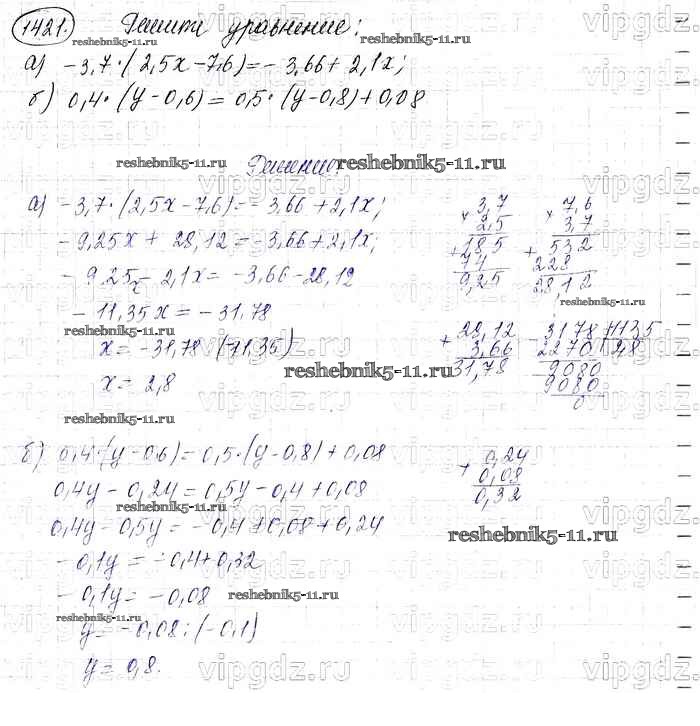 1421. Решить уравнение:
а) -3,7·(2,5x-7,6)=-3,66+2,1x;
б) 0,4·(y-0,6)=0,5·(y-0,8)+0,08
Решение:
а) -3,7·(2,5x-7,6)=-3,66+2,1x;
-9,25x+28,12=-3,66+2,1x;
-9,25x-2,1x=-3,66-28,12
-11,35x=-31,78
x=-31,78:(-11,35)
x=2,8
× 3,7
2,5
+ 185
74
9,25
× 7,6
3,7
+ 532
228
2812
+ 28,12
3,66
31,78
- 3178 | 1135
2270 | 2,8
- 9080
9080
0
б) 0,4·(y-0,6)=0,5·(y-0,8)+0,08
0,4y-0,24=0,5y-0,4+0,08
0,4y-0,5y=-0,4+0,08+0,24
-0,1y=-0,4+0,32
-0,1y=-0,08
y=-0,08:(-0,1)
y=0,8.
+ 0,24
0,08
0,32
reshebnik5-11.ru
reshebnik5-11.ru
reshebnik5-11.ru
reshebnik5-11.ru
reshebnik5-11.ru
reshebnik5-11.ru
reshebnik5-11.ru
reshebnik5-11.ru
reshebnik5-11.ru
reshebnik5-11.ru
reshebnik5-11.ru
vipgdz.ru